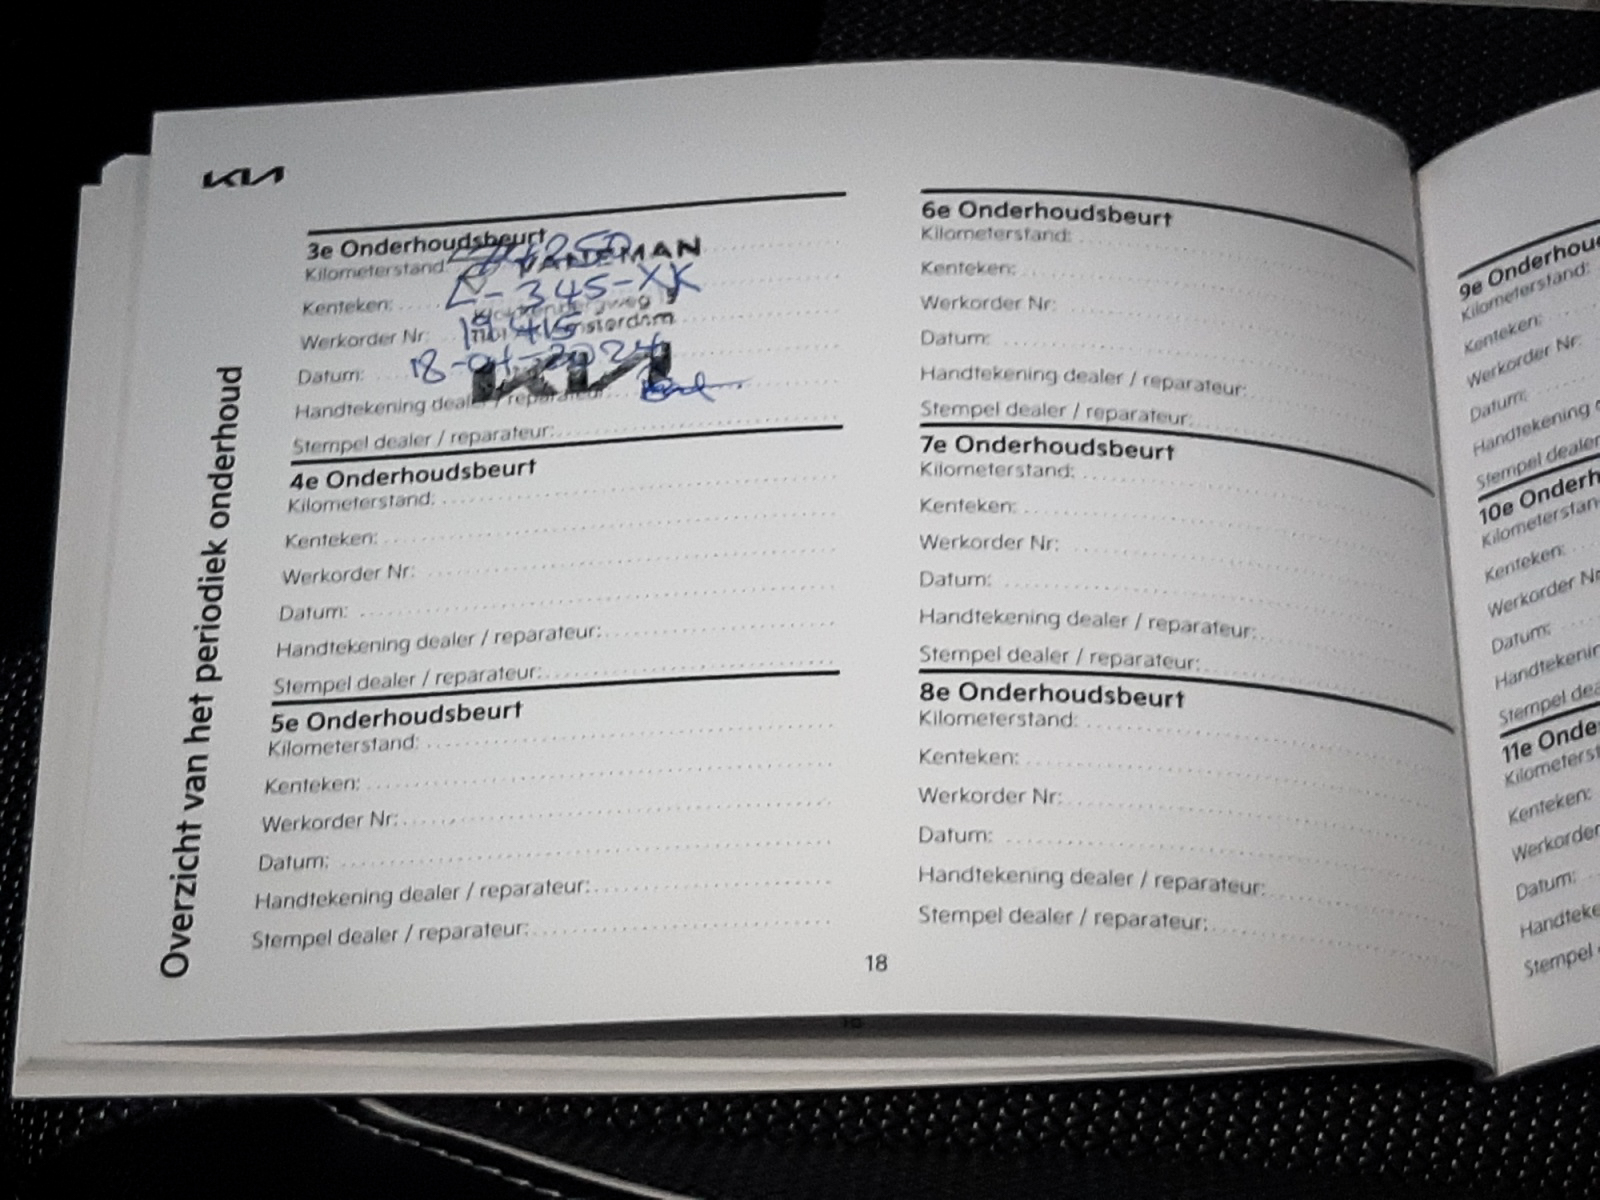 KIA
Overzicht van het periodiek onderhoud
3e Onderhoudsbeurt
Kilometerstand:
VANEMAN
Kenteken: L-345-XK
Werkorder Nr: 19415
Amsterdam
Datum: 18-01-2024
KIA
Handtekening dealer / reparateur:
Stempel dealer / reparateur:
4e Onderhoudsbeurt
Kilometerstand:
Kenteken:
Werkorder Nr:
Datum:
Handtekening dealer / reparateur:
Stempel dealer / reparateur:
5e Onderhoudsbeurt
Kilometerstand:
Kenteken:
Werkorder Nr:
Datum:
Handtekening dealer / reparateur:
Stempel dealer / reparateur:
6e Onderhoudsbeurt
Kilometerstand:
Kenteken:
Werkorder Nr:
Datum:
Handtekening dealer / reparateur:
Stempel dealer / reparateur:
7e Onderhoudsbeurt
Kilometerstand:
Kenteken:
Werkorder Nr:
Datum:
Handtekening dealer / reparateur:
Stempel dealer / reparateur:
8e Onderhoudsbeurt
Kilometerstand:
Kenteken:
Werkorder Nr:
Datum:
Handtekening dealer / reparateur:
Stempel dealer / reparateur:
18
9e Onderhou
Kilometerstand:
Kenteken:
Werkorder Nr:
Datum:
Handtekening
Stempel dealer
10e Onderh
Kilometerstan
Kenteken:
Werkorder Nr
Datum:
Handtekenin
Stempel dea
11e Onde
Kilometerst
Kenteken:
Werkorder
Datum:
Handteke
Stempel